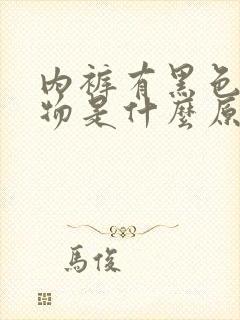 內褲有黑色
物是什麼原
馬俊